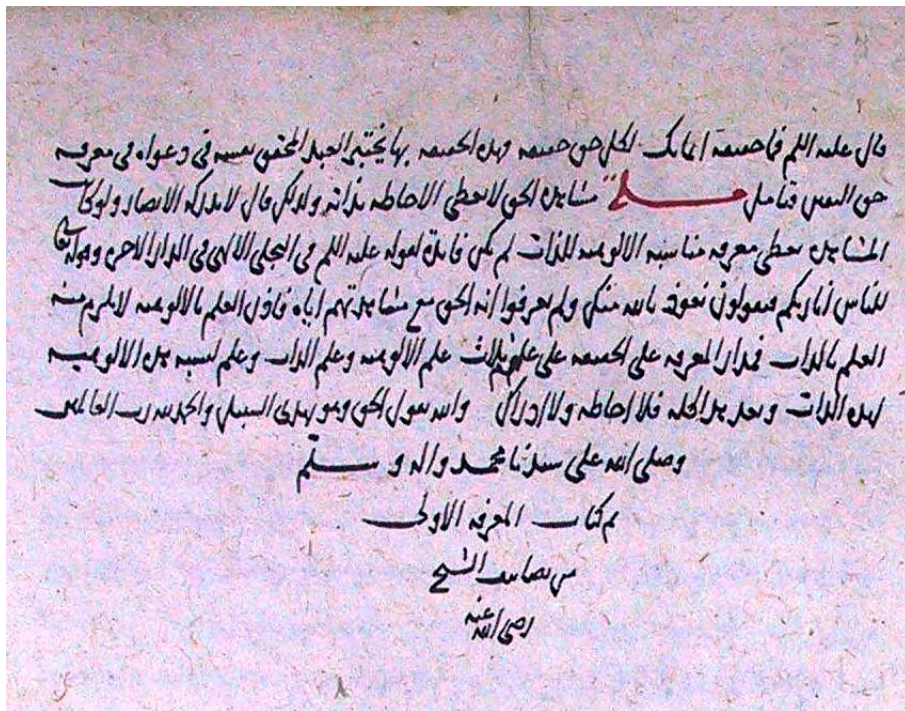 قال عليه السلم فما حقيقة ايمانك لكل حق حقيقة وبهذه الحقيقه بها يختبر العبد المحقق نفسه في دعواه في معرفه
حق اليقين فتامل مسئلة مشاهدة الحق لا تعطي الاحاطه بذاته ولذلك قال لا تدركه الابصار ولو كانت
المشاهدة تعطي معرفه مناسبه الالوهيه للذات لم تكن فايدة لقوله عليه السلم في التجلي الالهي في الدار الاخره وقوله
للناس انا ربكم فيقولون نعوذ بالله منك ولم يعرفوا انه الحق مع مشاهدتهم اياه فاذن العلم بالالوهيه لا يلزم منه
العلم بالذات فمدار المعرفه على الحقيقه على علوم ثلاث علم الالوهيه وعلم الذات وعلم نسبه هذه الالوهيه
لهذه الذات وبعد هذا كله فلا احاطه ولا ادراك والله يقول الحق وهو يهدي السبيل والحمد لله رب العالمين
وصلى الله على سيدنا محمد واله وسلم
تم كتاب المعرفه الاولى
من تصانيف الشيخ
رضي الله عنه